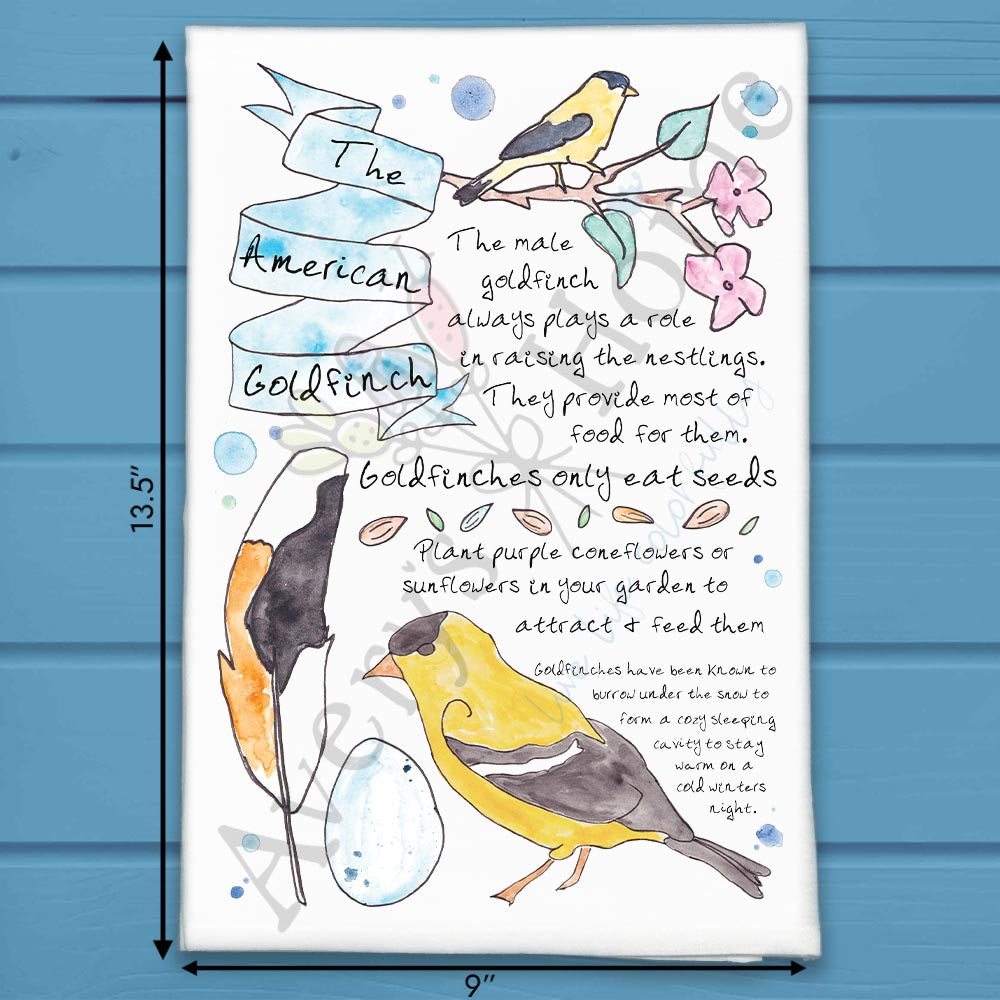 The
American
Goldfinch
The male
goldfinch
always plays a role
in raising the nestlings.
They provide most of
food for them.
Goldfinches only eat seeds
Plant purple coneflowers or
sunflowers in your garden to
attract & feed them
Goldfinches have been known to
burrow under the snow to
form a cozy sleeping
cavity to stay
warm on a
cold winters
night.
13.5"
9"
Avery's Home
live life colorfully